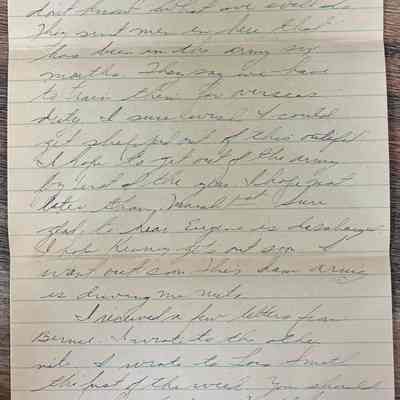 don't know what we
They sent men in here that
has been in the army six
months. They say we have
to train them for overseas
duty. I sure wish I could
get shipped out of this outfit
I hope to get out of the army
by end of the year I hope not
later than March 1st Sure
glad to hear Eugene is discharged.
I hope Kenny gets out soon. I
want out soon. This dam army
is driving me nuts.
I received a few letters from
Bernice. I wrote to the other
nite. I wrote to Smith
the first of the week. You should